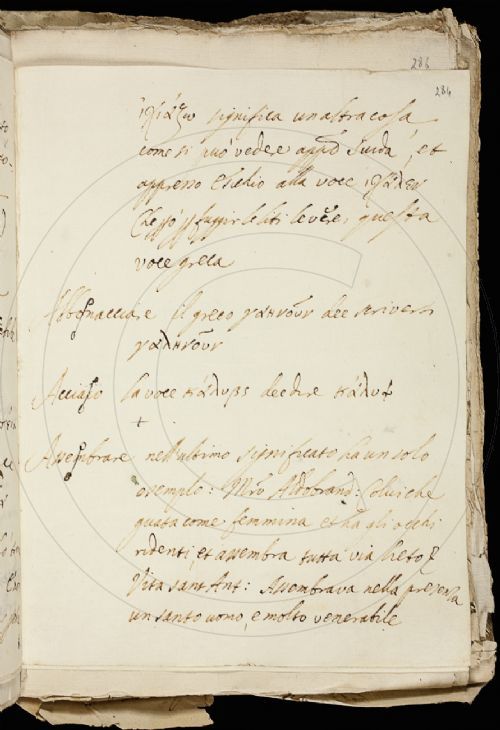 286
284
significa un altra cosa
come si può vedere app.o Suida, et
appresso Esichio alla voce
Che si può fuggir le liti levare, questa
voce greca
Abbonacciare il greco γαηνοῦν dee scriversi
γαληνοῦν
Acciaio la voce κάλυβς dee dire κάλυψ
+
Assembrare nell'ultimo significato ha un solo
esemplo: M.ro Aldobrand: Colui che
guata come femmina et ha gli occhi
ridenti, et assembra tutta via lieto
Vita sant Ant: Assembrava nella presenza
un santo uomo, e molto venerabile